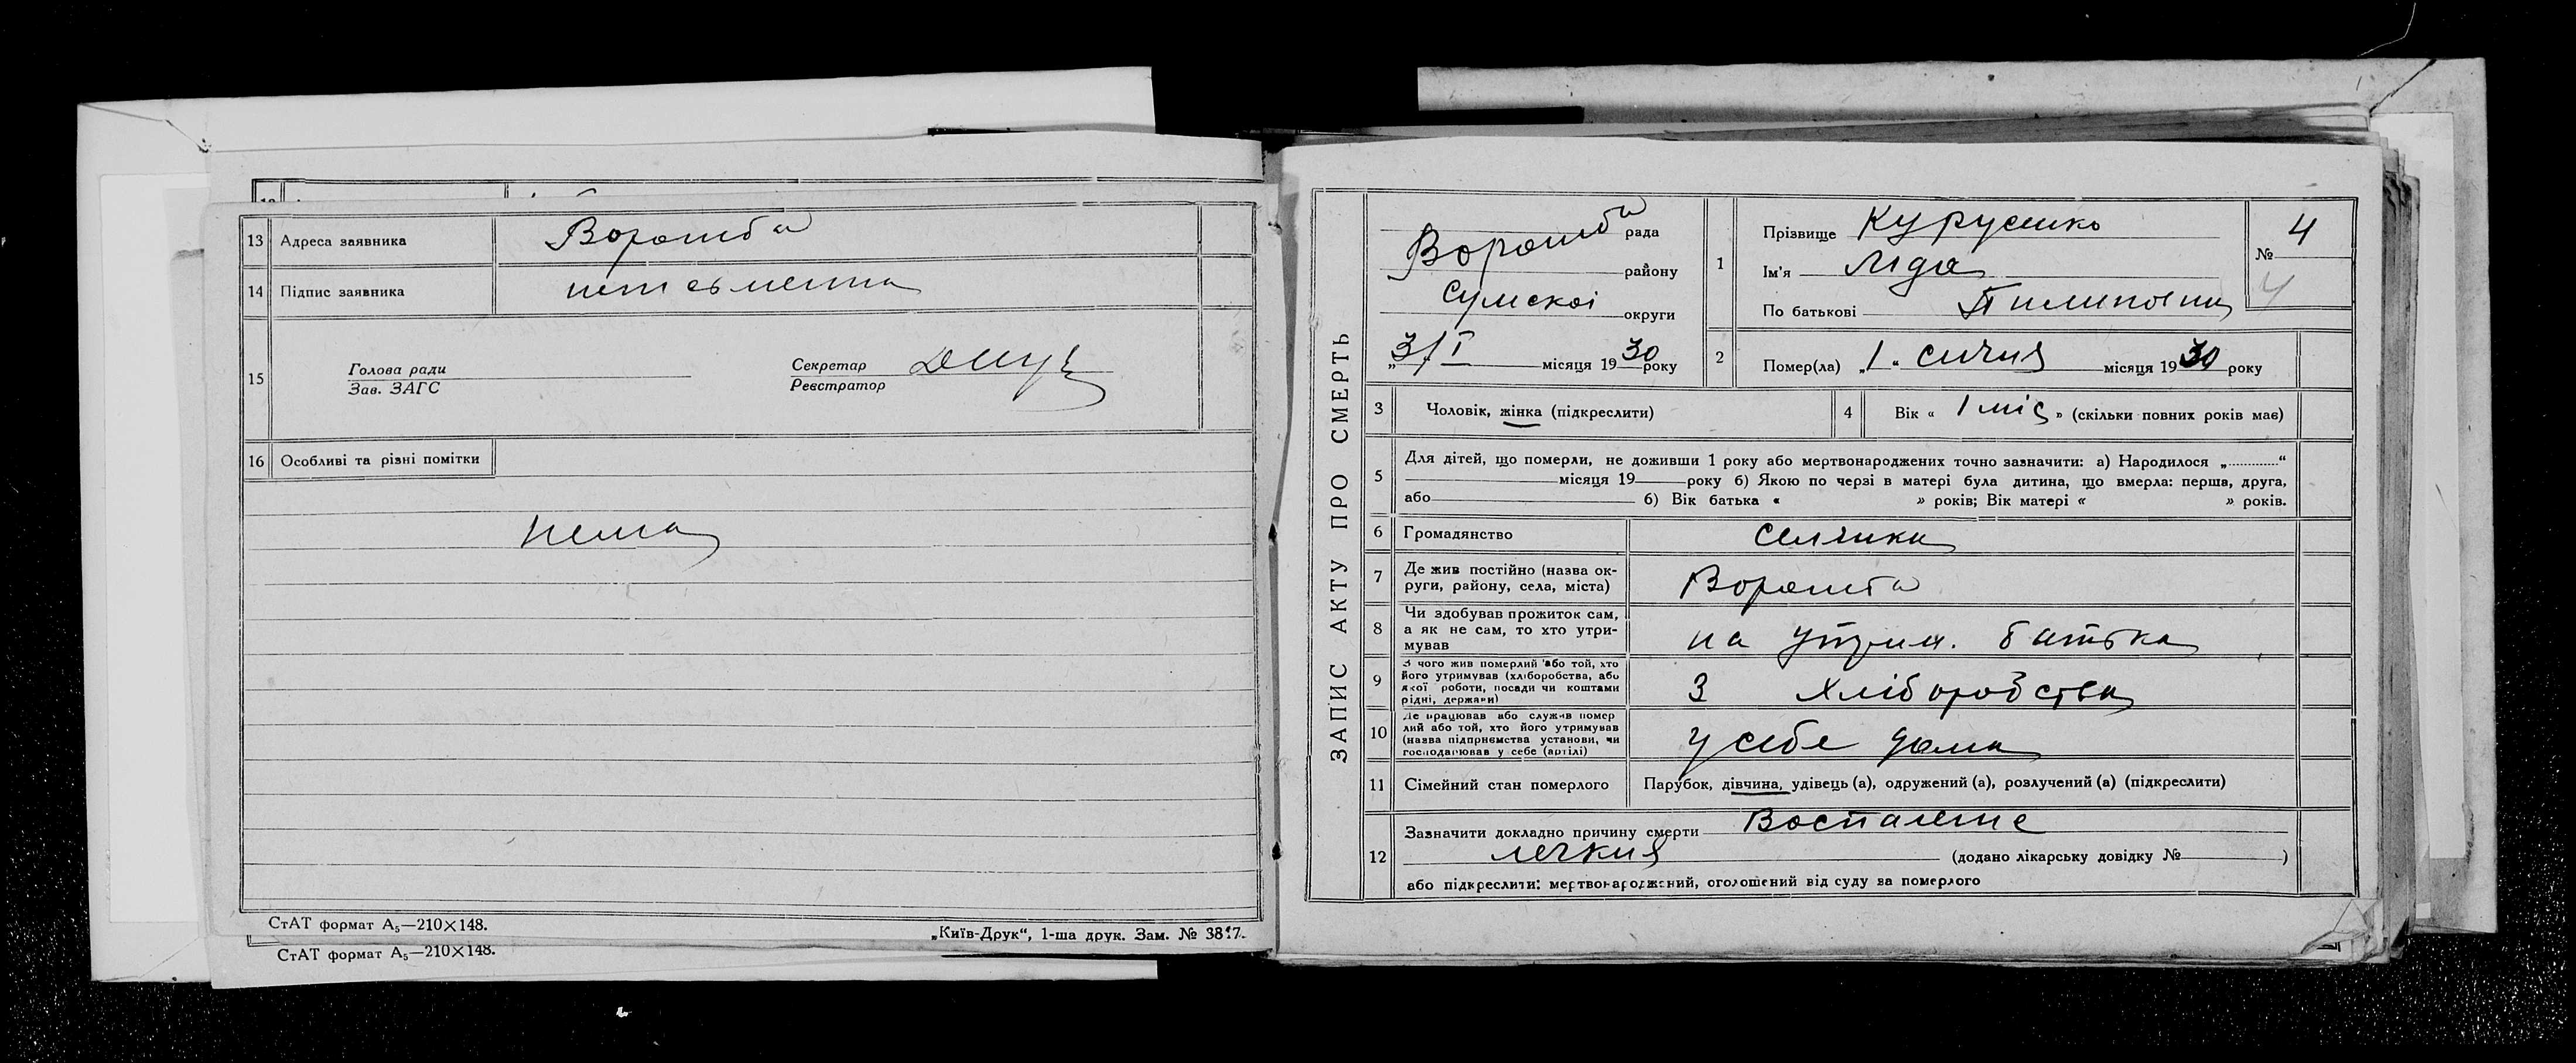 13 Адреса заявника Ворожба
14 Підпис заявника неписьменна
15 Голова ради
Зав. ЗАГС
Секретар
Реєстратор
16 Особливі та різні помітки
нема
СтАТ формат А₅—210×148.
„Київ-Друк“, 1-ша друк. Зам. №
СтАТ формат А₅—210×148.
ЗАПИС АКТУ ПРО СМЕРТЬ
Ворожба рада
району
Сумскої округи
„3/I місяця 1930 року
1 Прізвище Курусенко
Ім'я Лида
По батькові Пилиповна
№ 4
4
2 Помер(ла) „1“ січня місяця 1930 року
3 Чоловік, жінка (підкреслити)
4 Вік « 1 міс » (скільки повних років має)
5 Для дітей, що померли, не доживши 1 року або мертвонароджених точно зазначити: а) Народилося „............“
місяця 19 року б) Якою по черзі в матері була дитина, що вмерла: перша, друга,
або б) Вік батька « » років; Вік матері « » років.
6 Громадянство Селянка
7 Де жив постійно (назва ок-
руги, району, села, міста) Ворожба
8 Чи здобував прожиток сам,
а як не сам, то хто утри-
мував на утрим. батька
9 З чого жив померлий або той, хто
його утримував (хліборобства, або
якої роботи, посади чи коштами
рідні, держави) З хліборобства
10 Де працював або служив помер
лий або той, хто його утримував
(назва підприємства установи, чи
господарював у себе (артілі) у себе дома
11 Сімейний стан померлого Парубок, дівчина, удівець (а), одружений (а), розлучений (а) (підкреслити)
12 Зазначити докладно причину смерти Воспаление
легких (додано лікарську довідку № )
або підкреслити: мертвонароджений, оголошений від суду за померлого